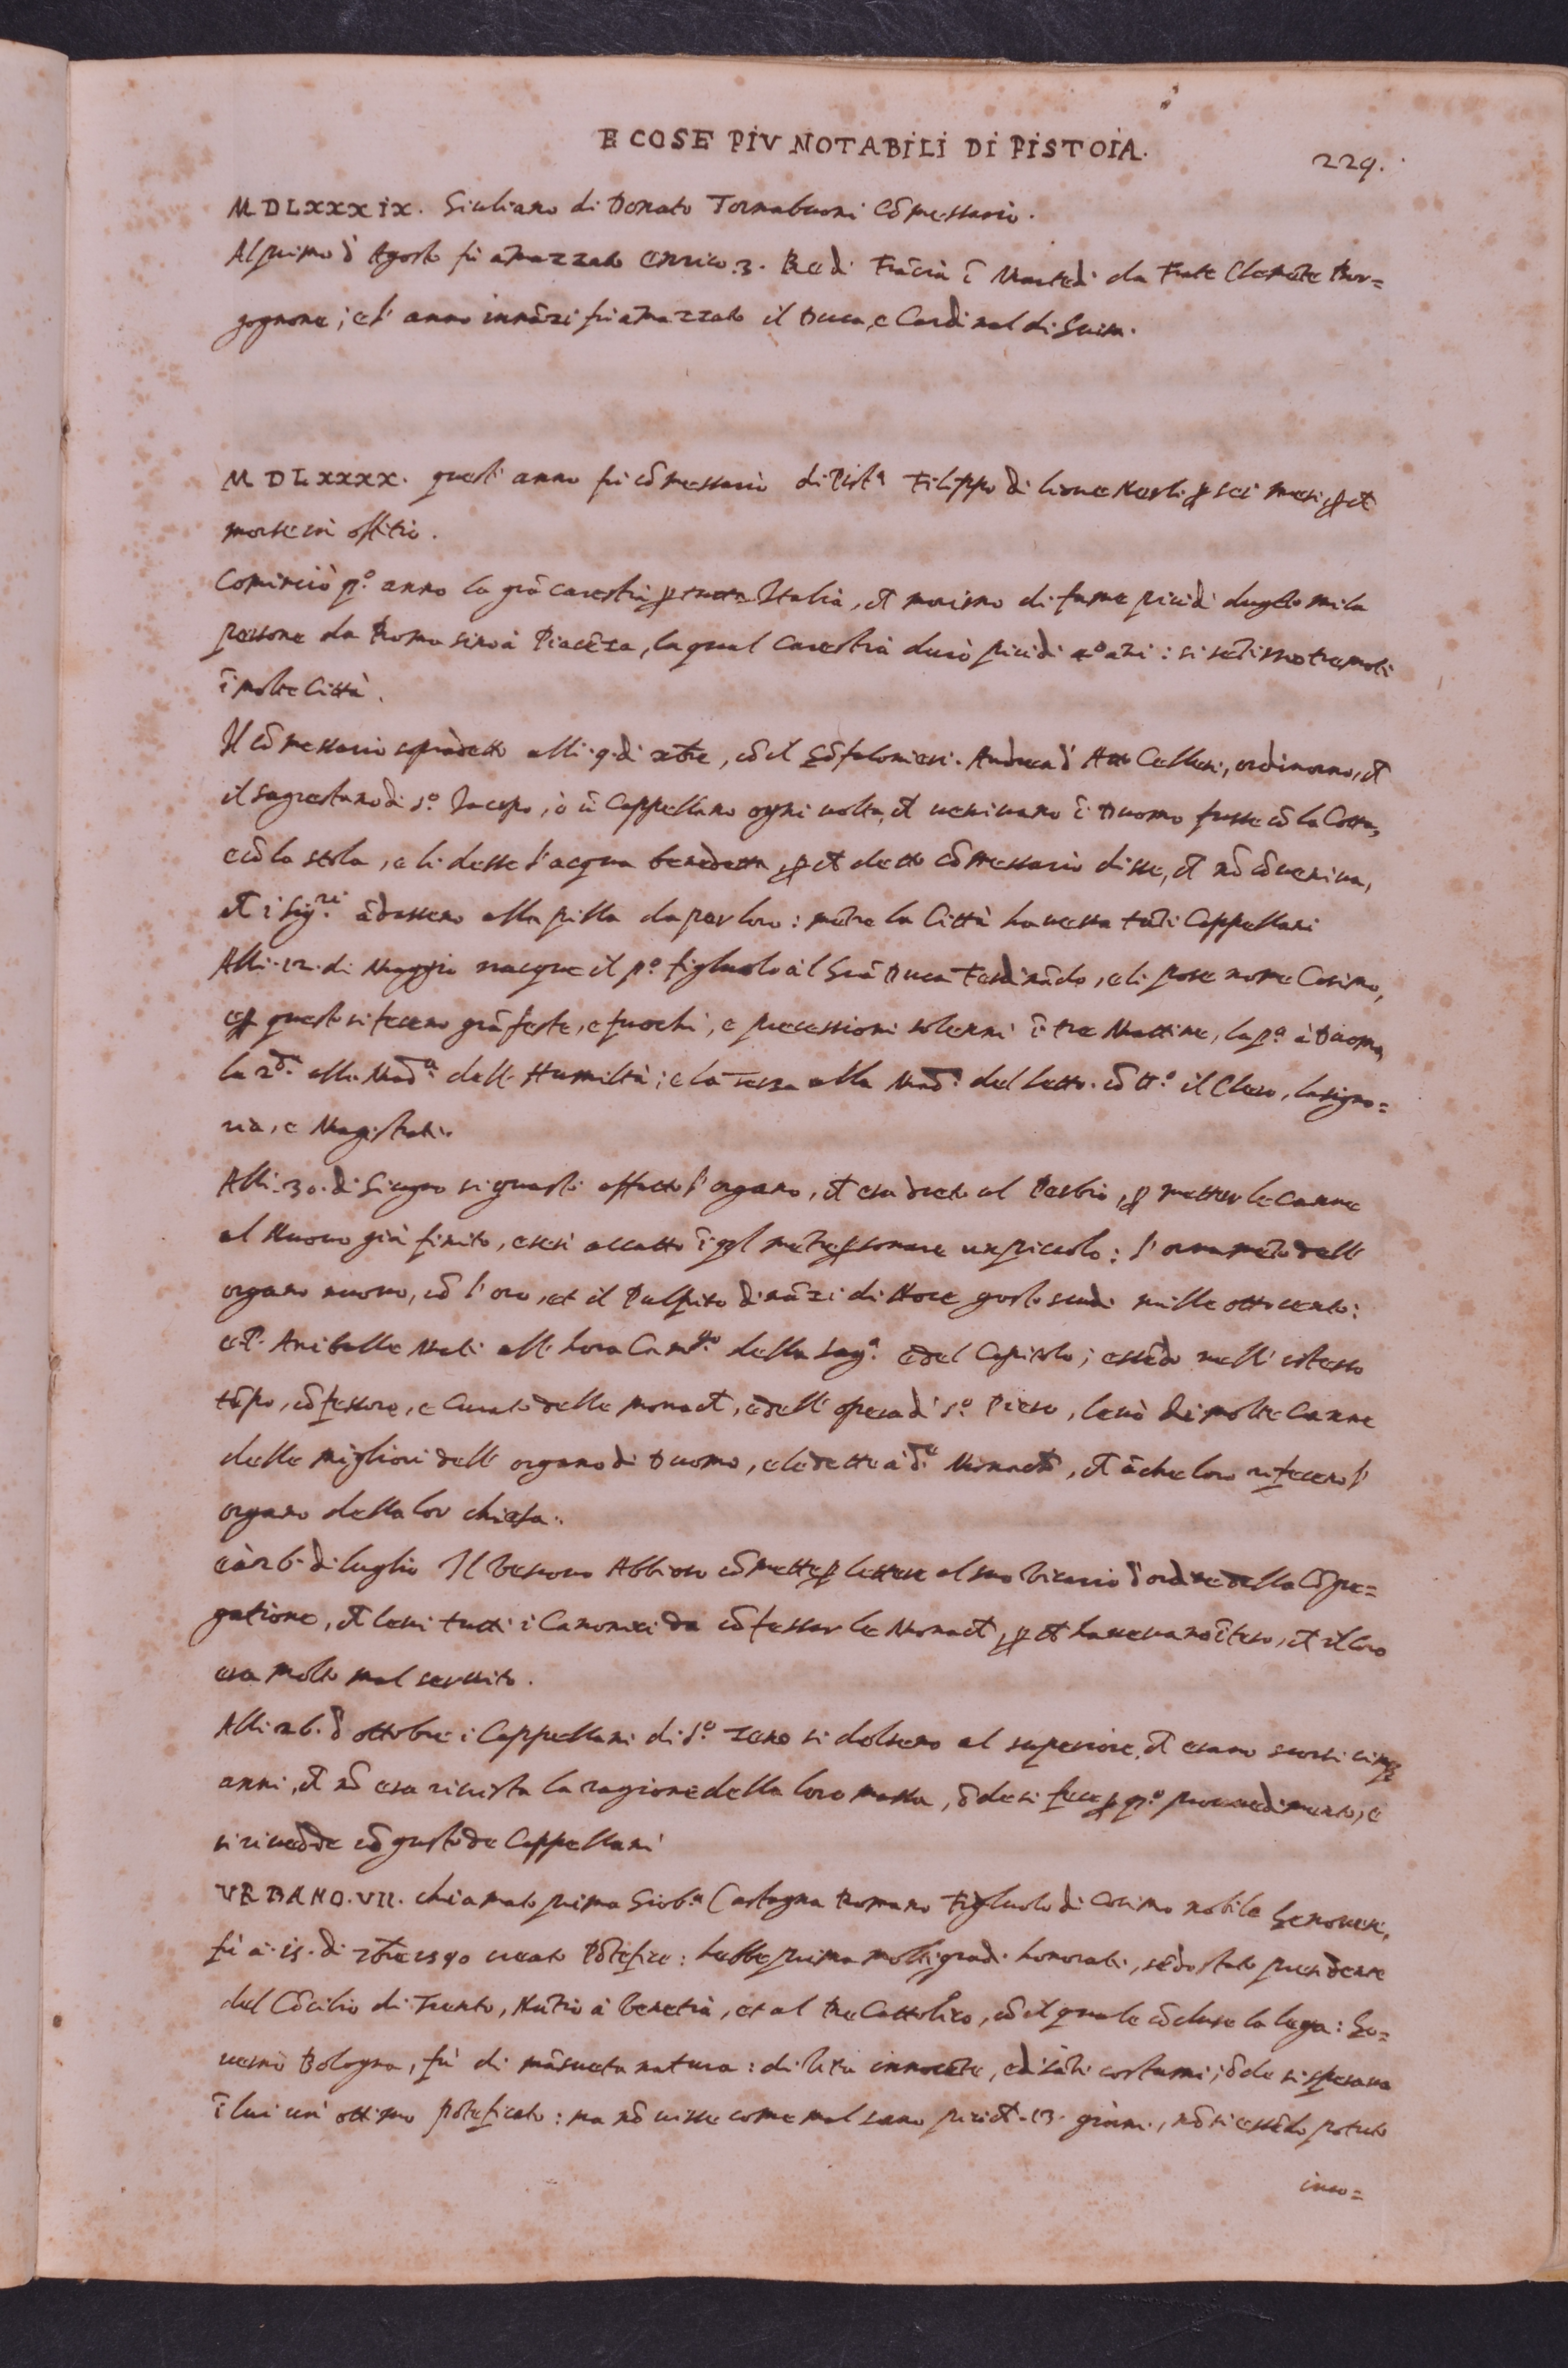 E COSE PIV NOTABILI DI PISTOIA.
229.
MDLXXXIX. Giuliano di Donato Tornabuoni Cōmessario.
Al primo d' Agosto fù amazzato Enrico .3. Re di Frācia ī Martedi da Frate Clemēte Bor=
gognone; e l' anno innāzi fù amazzato il Duca, e Cardinal di Guisa.
MDLXXXX. quest' anno fù cōmessario di Pist.ª Filippo di Lione Nerli ꝑ sei mesi, ꝑ ct
morse in offitio.
Cominciò q.º anno la grā carestia ꝑ tutta Italia, ct morirno di fame più di dugēto mila
persone da Roma sino à Piacēza, la qual carestia durò più di 2º ani: si sētirno tremoti
ī molte Città.
Il cōmessario sopradetto alli .9. di xbre, cō il Gōfalonieri. Andrea d' Atto Cellesi, ordinorno, ct
il sagrestano di S.º Jacopo, ò ū Cappellano ogni volta, ct venivano ī Duomo fusse cō la Cotta,
e cō la stola, e li desse l' acqua benedetta, ꝑ ct detto cōmessario disse, ct nō cōveniva,
ct i Sig.ri ādassero alla pilla da per loro: mētre la Città haveva tāti Cappellani
Alli .12. di Maggio nacque il p.º figluolo al Grā Duca Ferdināndo, e li pose nome Cosimo,
e ꝑ questo si fecero grā feste, e fuochi, e processioni solenni ī tre Mattine, la p.ª à Duomo,
la 2.ª alla Mad.ª dell' Humiltà; e la Terza alla Mad.ª del letto. cō tt.º il Clero, la signo=
ria, e Magistrati.
Alli .30. di Giugno si guastò affatto l' organo, ct era drieto al Perbio, ꝑ metter le canne
al Nuovo già finito, e si accattò ī q̄l mētre ꝑ sonare un piccolo: l' ornamēto dell'
organo nuovo, cō l' oro, et il Pulpito dināzi di Noce costò scudi mille ottocento:
e P. Anibale Mati all' hora Cam.go della Sag.ª e del Capitolo; essēdo nell' istesso
tēpo, cōfessore, e Curato delle monact, e dell' opera di S.º Piero, levò di molte canne
delle migliori dell' organo di Duomo, e le dette à d.e Monact, ct āche loro rifecero l'
organo della lor chiesa.
e à 26. di luglio Il Vescovo Abbioso cōmette ꝑ lettere al suo Vicario d' ordine della Cōgre=
gatione, ct levi tutti i Canonici da cōfessar le Monact, ꝑ ct havevano īteso, ct il coro
era molto mal servito.
Alli .26. d' ottobre i Cappellani di S.º Zeno si dolsero al superiore, ct erano scorsi cinq̄
anni, ct nō era rivista la ragione della loro massa, ōde si fece ꝑ q.º provvedimento, e
si rivedde cō gusto de Cappellani
VRBANO .VII. chiamato prima Giob.ª Castagna Romano Figluolo di Cosimo nobile Genovese,
fù à .15. di 7bre 1590 creato Pōtefice: hebbe prima molti gradi honorati, sēdo stato presidente
del Cōcilio di Trento, Nūtio à Venetia, et al Re Cattolico, cō il quale cōcluse la lega: Go=
vernò Bologna, fù di māsueta natura: di vita innocēte, e di sāti costumi; ōde si sperava
ī lui un' ottimo pōteficato: ma nō visse come mal sano più ct .13. giorni, nō si essēdo potuto
inco=